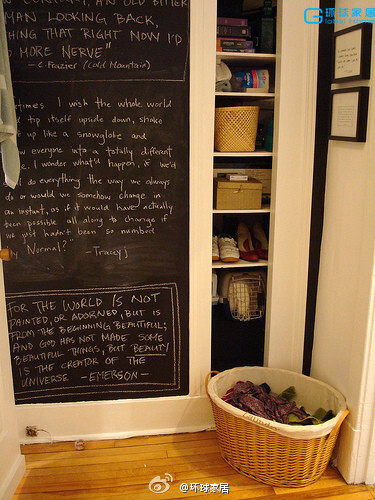 环球家居
AN OLD BITTER
MAN LOOKING BACK,
THING THAT RIGHT NOW I'D
MORE NERVE"
-C. Frazier (Cold Mountain)
times I wish the whole world
tip itself upside down, shake
up like a snowglobe and
everyone into a totally different
I wonder what'd happen, if we'd
do everything the way we always
do or would we somehow change in
an instant, as if it would have actually
been possible all along to change if
we just hadn't been so numbed
Normal?"
-Tracey
FOR THE WORLD IS NOT
PAINTED, OR ADORNED, BUT IS
FROM THE BEGINNING BEAUTIFUL;
AND GOD HAS NOT MADE SOME
BEAUTIFUL THINGS, BUT BEAUTY
IS THE CREATOR OF THE
UNIVERSE -EMERSON-
@环球家居